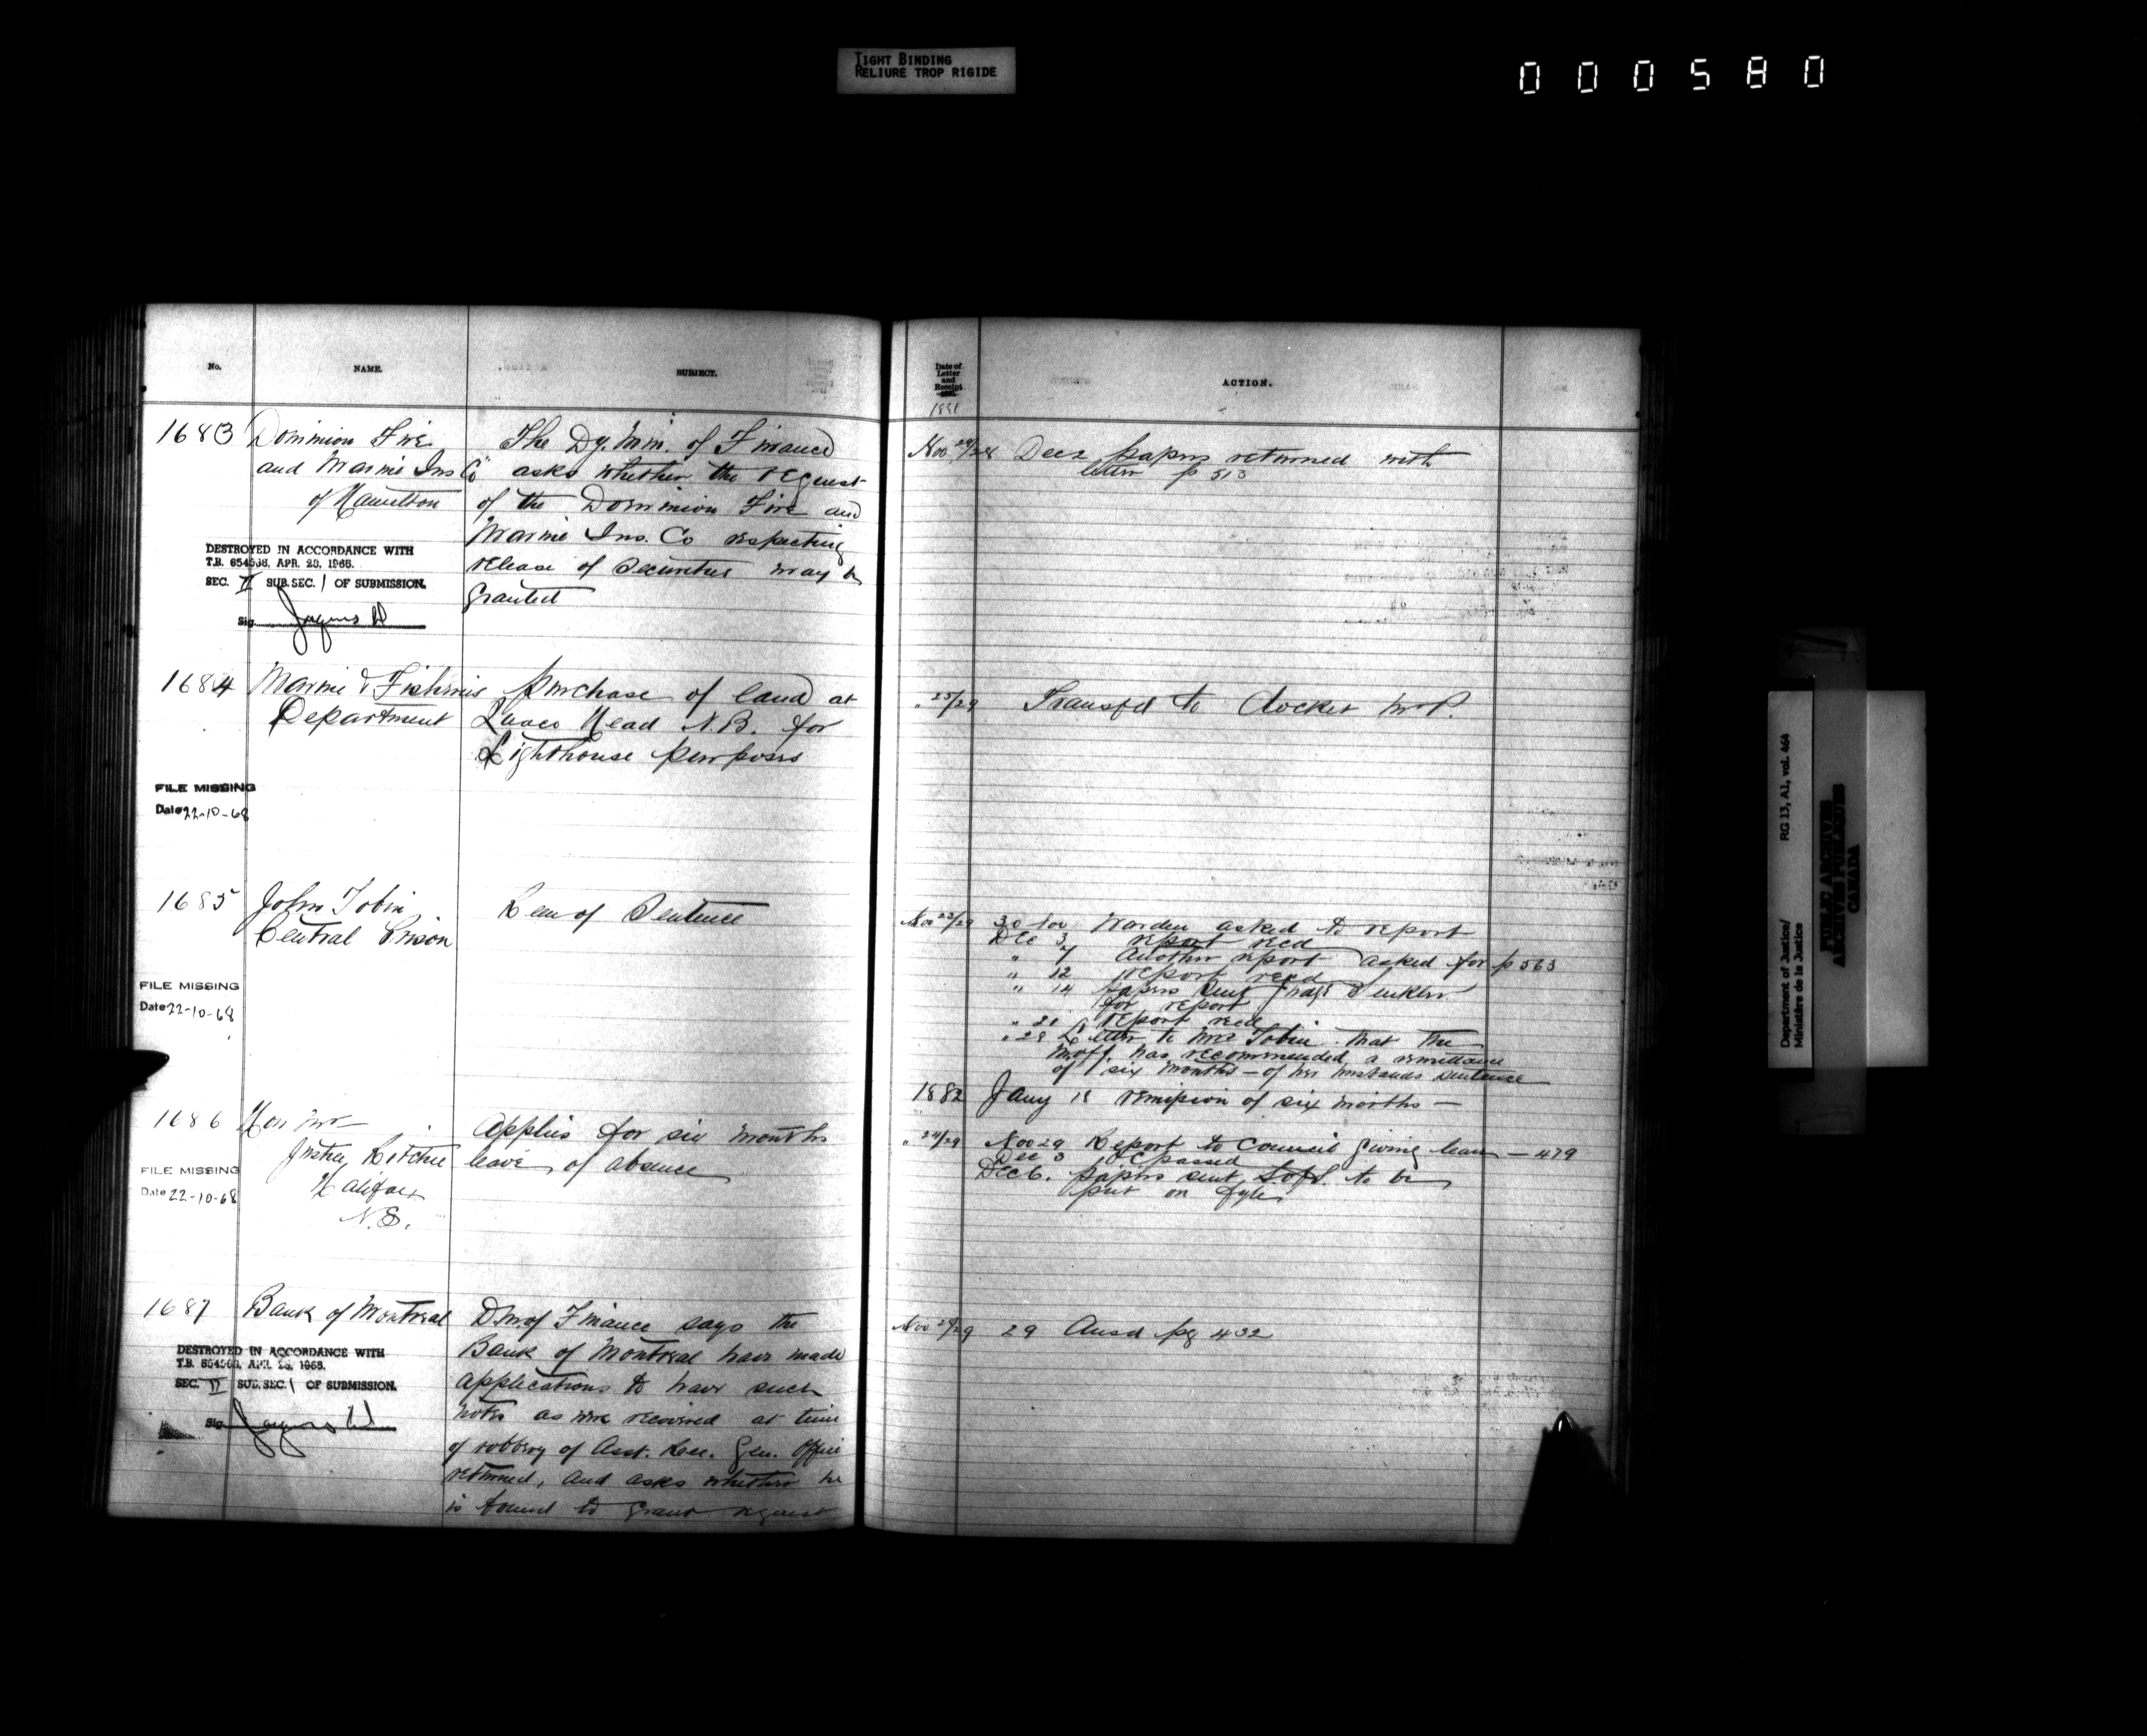 TIGHT BINDING
RELIURE TROP RIGIDE
000580
No.
NAME.
SUBJECT.
1683
Dominion Fire
and Marine Ins Co
of Hamilton
The Dy. Min. of Finance
asks whether the request
of the Dominion Fire and
Marine Ins. Co respecting
release of Securities may be
granted
DESTROYED IN ACCORDANCE WITH
T.B. 654536, APR. 28, 1966.
SEC. II SUB.SEC. 1 OF SUBMISSION.
Sig.
1684
Marine & Fisheries
Department
purchase of land at
Head N.B. for
Lighthouse purposes
FILE MISSING
Date 22-10-68
1685
John Tobin
Central Prison
Rem of Sentence
FILE MISSING
Date 22-10-68
1686
Hon Mr
Justice Ritchie
Halifax
N.S.
Applies for six months
leave of absence
FILE MISSING
Date 22-10-68
1687
Bank of Montreal
D.M. of Finance says the
Bank of Montreal have made
applications to have such
notes as were recovered at time
of robbery of Asst. Rec. Gen. Office
returned, and asks whether he
is bound to grant request
DESTROYED IN ACCORDANCE WITH
T.B. APR. 28, 1966.
SEC. II SUB.SEC. 1 OF SUBMISSION.
Sig.
Date of
Letter
and
Receipt
1881
ACTION.
Nov Dec 2 papers returned with
letter p 513
" 25/29 Transfd to docket
Nov 23/29 30 Nov Warden asked to report
Dec 3 report recd
" 7 Another report asked for p 563
" 12 report recd
" 14 papers sent
for report
" 21 report recd
" 28 Letter to Mrs Tobin that the
M of J. has recommended a remittance
of six months – of her husbands sentence
1882 Jany 18 remission of six months —
" 24/29 Nov 29 Report to Council giving leave — 479
Dec 3 OC passed
Dec 6. papers sent S. of S. to be
put on fyle
Nov 29/29 29 Ansd pg 432
Department of Justice/
Ministère de la Justice
RG 13, A1, vol. 464
PUBLIC ARCHIVES
ARCHIVES PUBLIQUES
CANADA